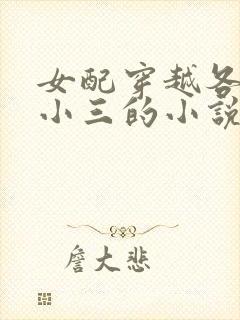 女配穿越各
小三的小说
詹大悲